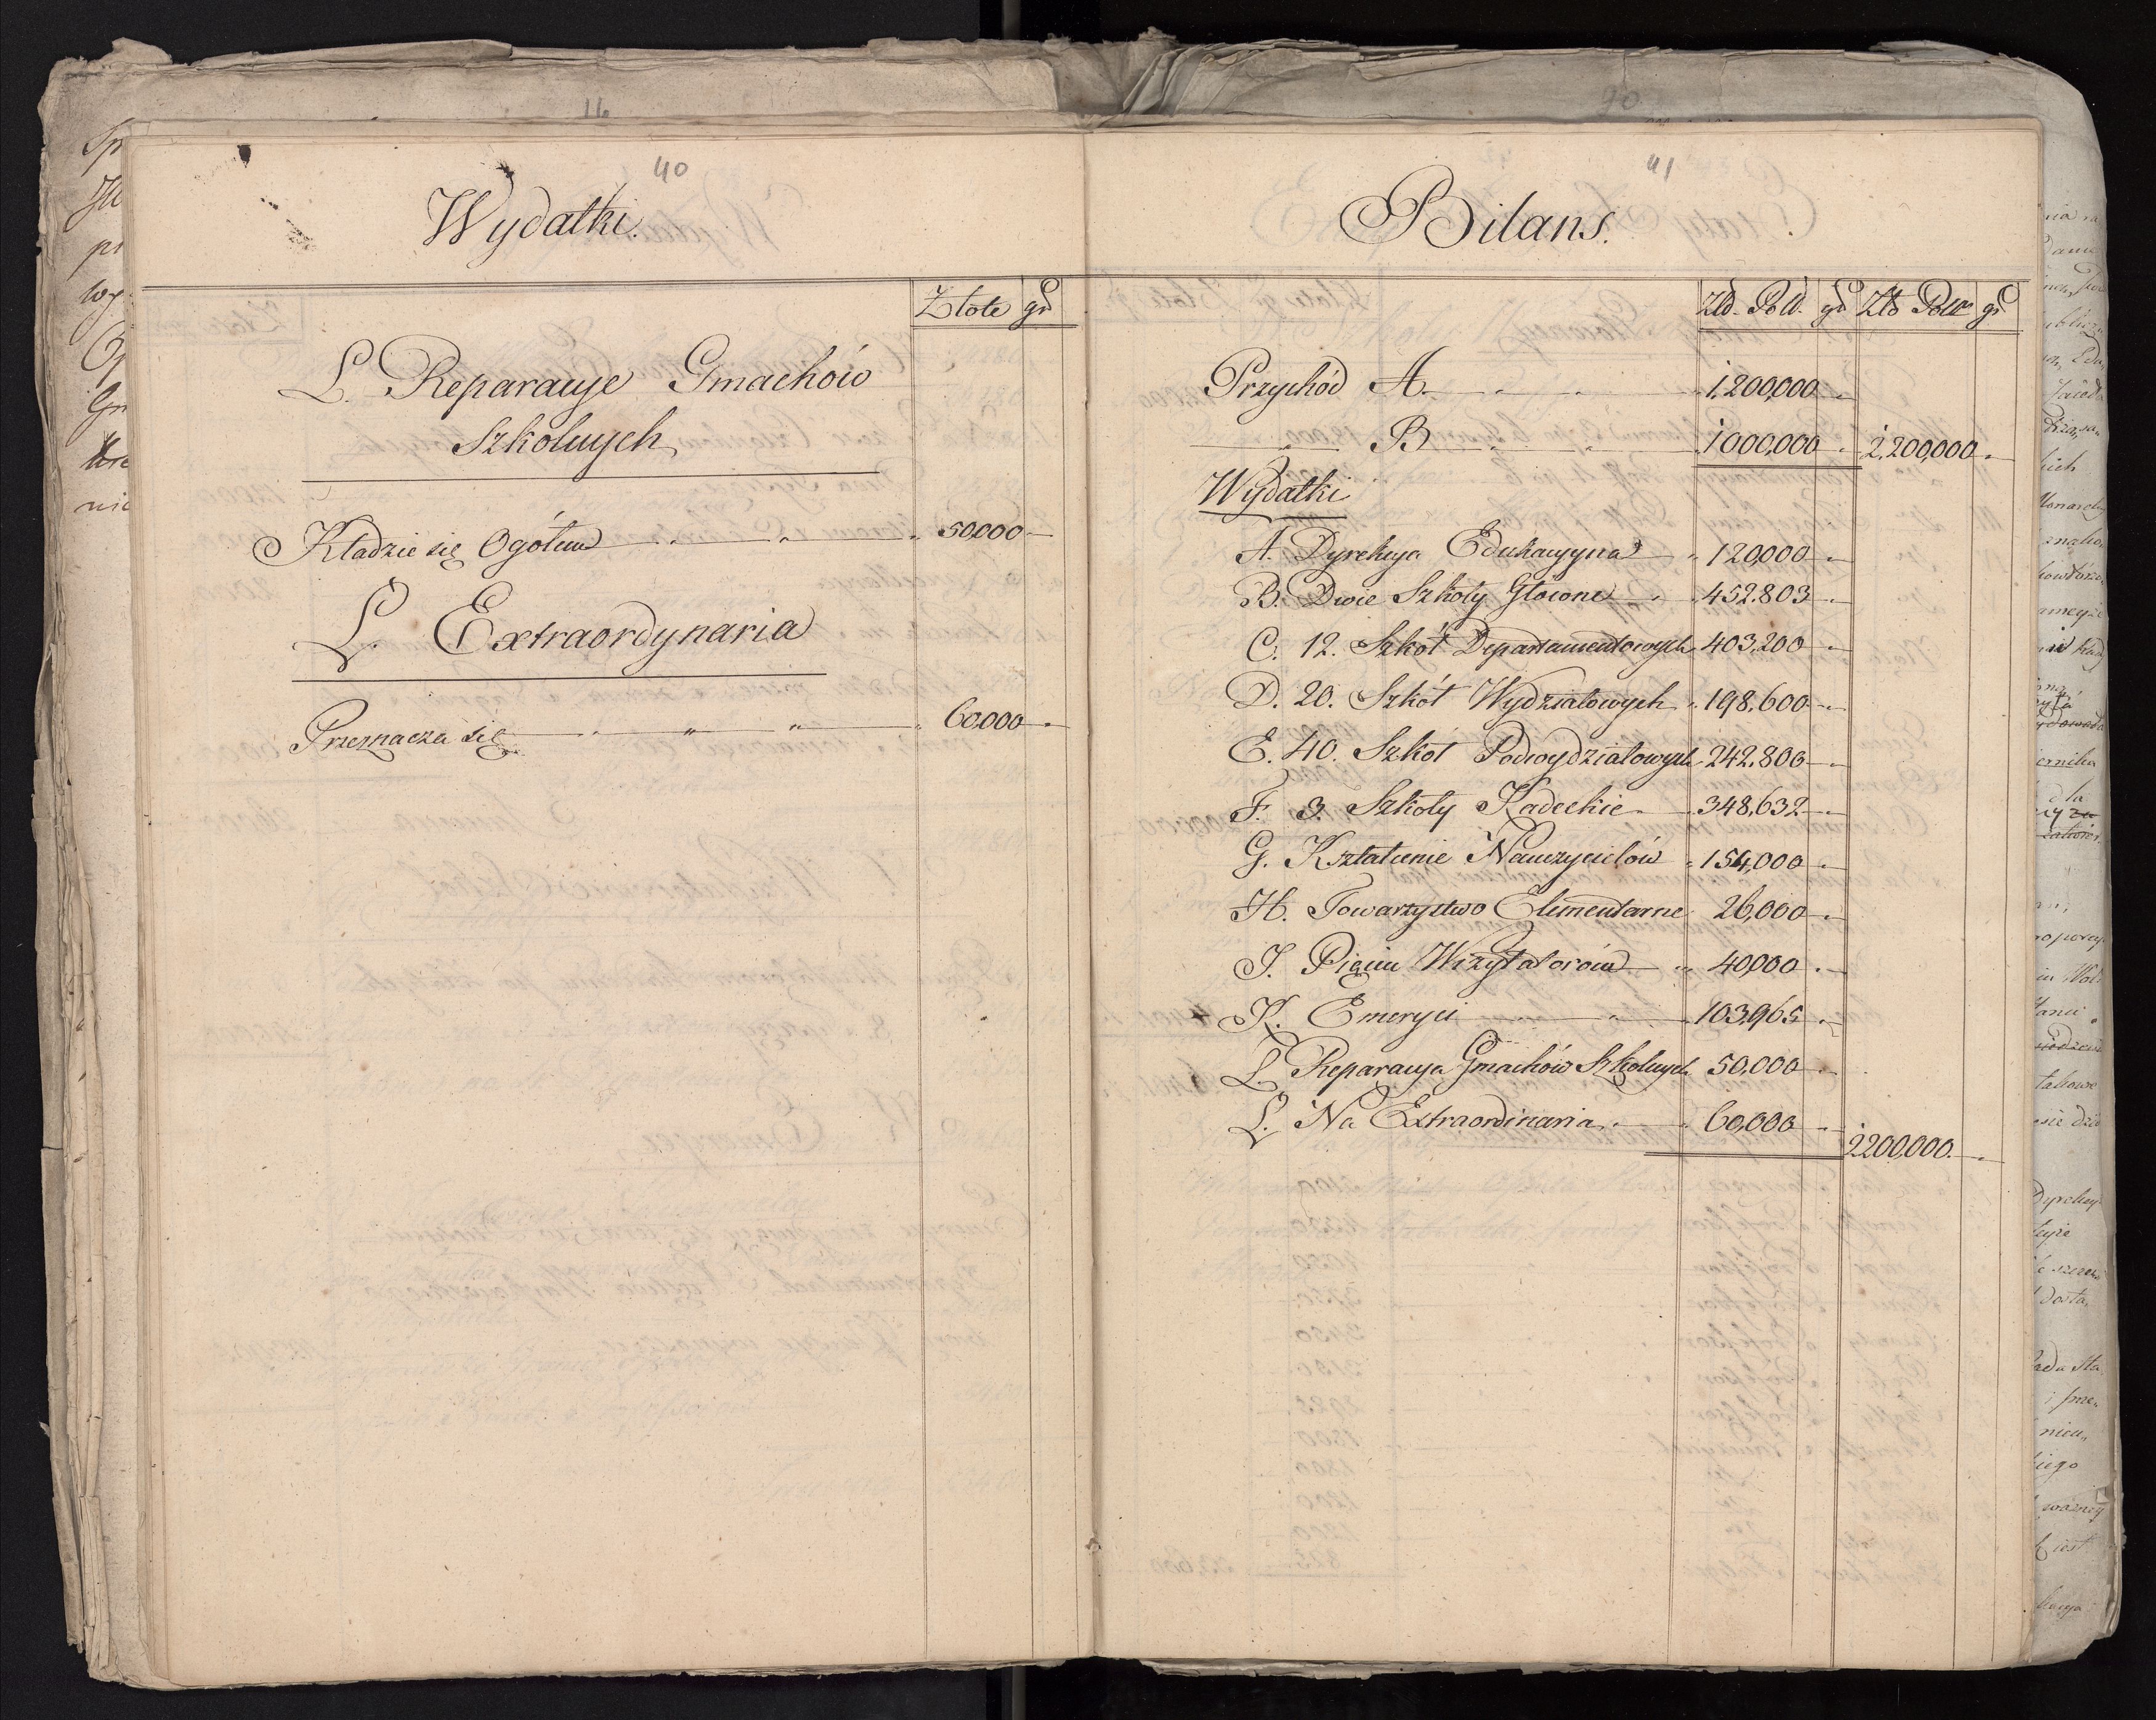 16
40
Wydatki.
Złote gr
L. Reparacye Gmachów
Szkolnych
Kładzie się Ogółem " " " 50,000 —
Ł. Extraordynaria
Przeznacza się " " " " 60,000 —
90
41
Bilans.
Zło. Pol. gr Zło Pol gr
Przychód A. " " 1,200,000 "
" B " " 1,000,000 " 2,200,000 "
Wydatki
A. Dyrekcya Edukacyyna " 120,000 "
B. Dwie Szkoły Główne " 452,803 "
C. 12. Szkół Departamentowych 403,200 "
D. 20. Szkół Wydziałowych " 198,600 "
E. 40. Szkół Podwydziałowych 242,800 "
F. 3. Szkoły Kadeckie " 348,632 "
G. Kształcenie Nauczycielów " 154,000 "
H. Towarzystwo Elementarne 26,000 "
I. Pięciu Wizytatorów " 40,000 "
K. Emeryci " 103,965 "
L. Reparacya Gmachów Szkolnych 50,000 "
Ł. Na Extraordinaria " 60,000 "
2,200,000 "